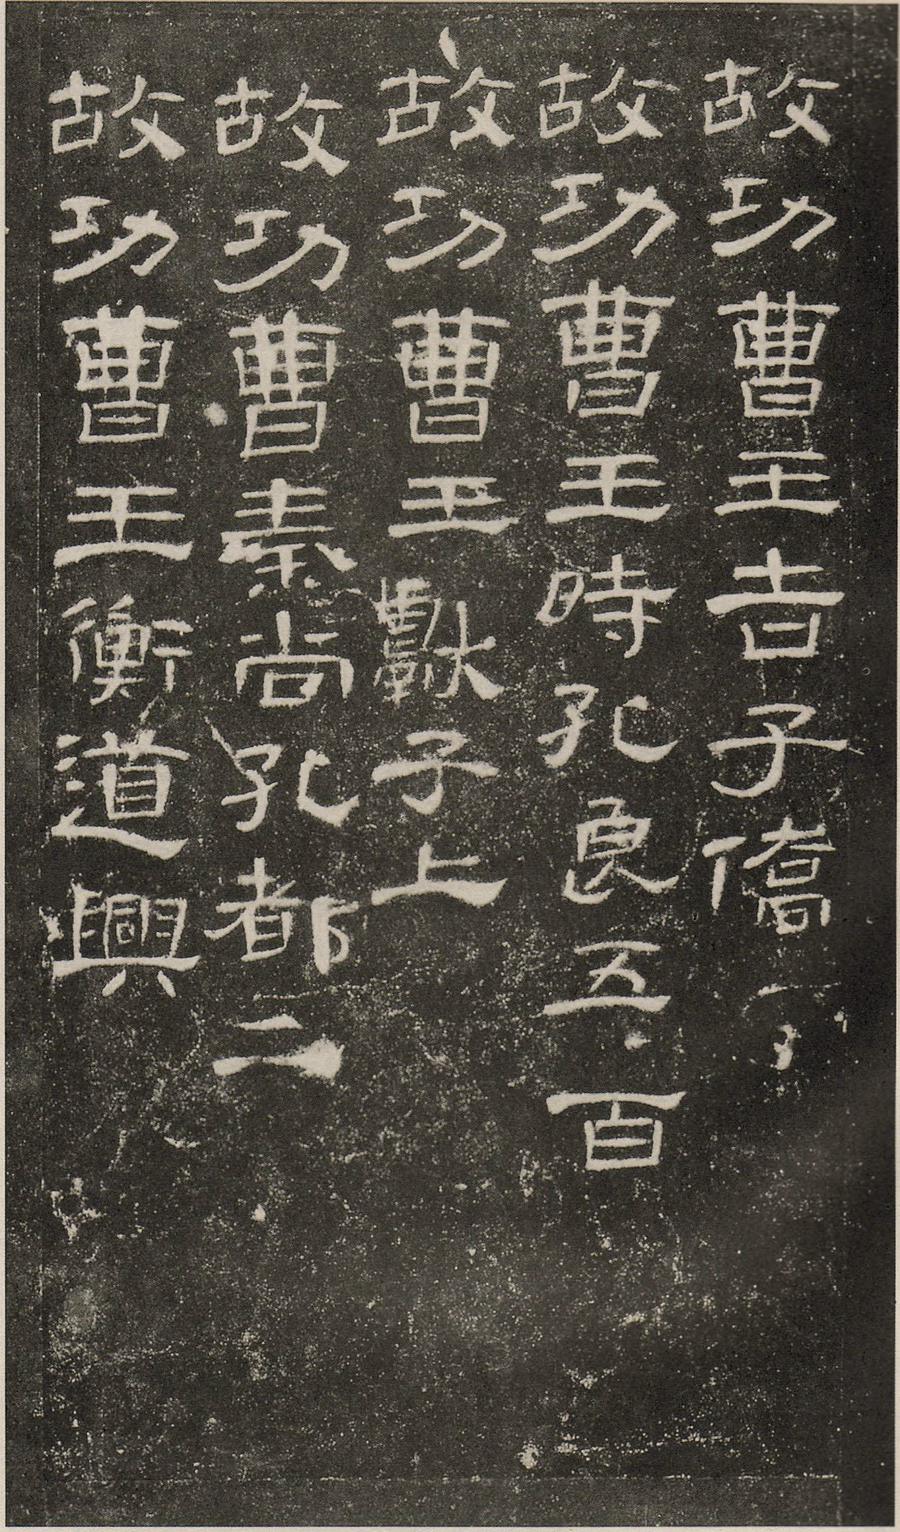 故功曹王吉子僑
故功曹王時孔良五百
故功曹王獻子上
故功曹秦尚孔都二
故功曹王衡道興